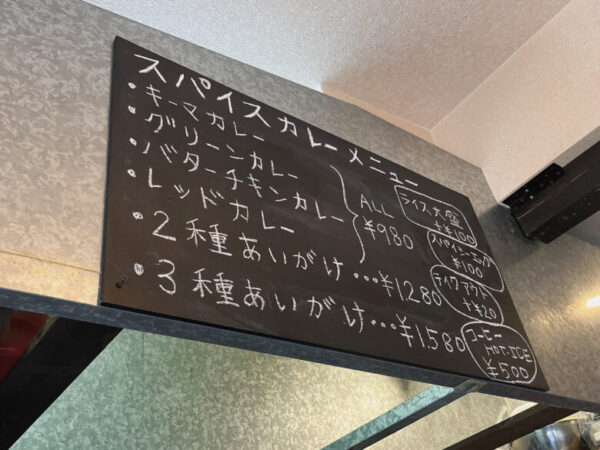 スパイスカレーメニュー
・キーマカレー
・グリーンカレー
・バターチキンカレー
・レッドカレー
ALL
¥980
・2種あいがけ…¥1,280
・3種あいがけ…¥1,580
ライス大盛
+¥100
スパイシーエッグ
¥100
テイクアウト
+¥20
コーヒー
HOT・ICE
¥500